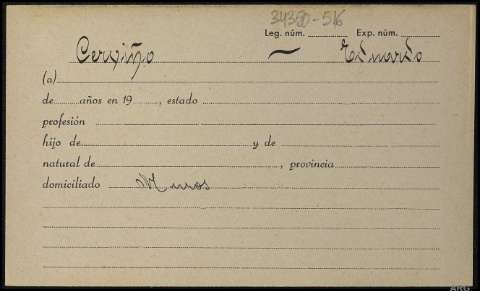 34380-516
Leg. núm. Exp. núm.
Cerviño — Eduardo
(a)
de años en 19 , estado
profesión
hijo de y de
natural de , provincia
domiciliado Muros
ARG